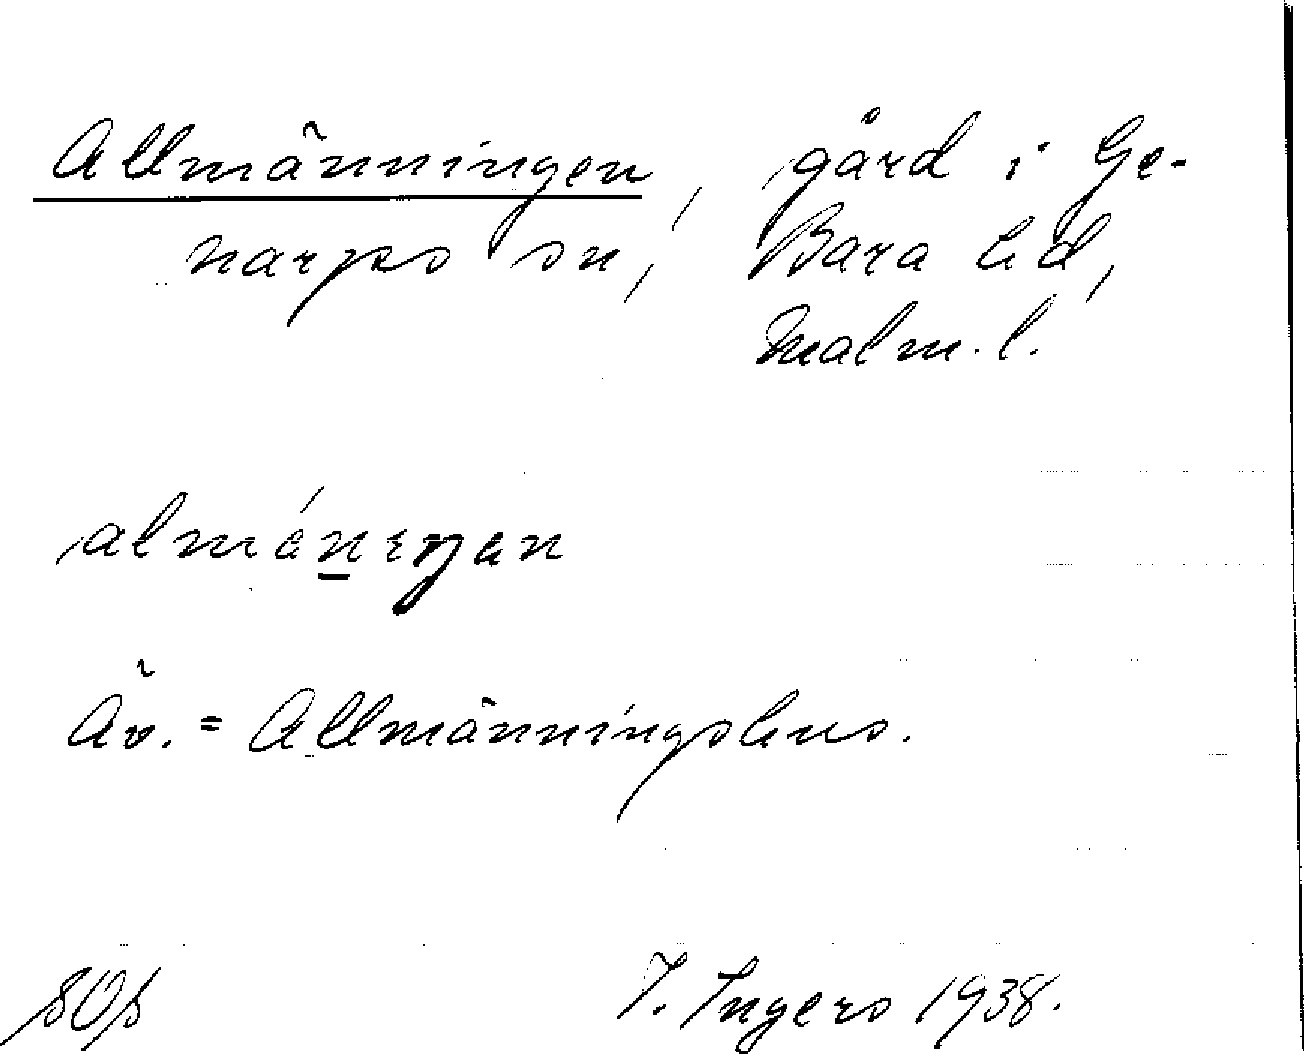 Allmänningen, gård i Ge-
narps sn, Bara hd,
Malm. l.
alméneŋan
Äv. = Allmänningshus.
I. Ingers 1938.